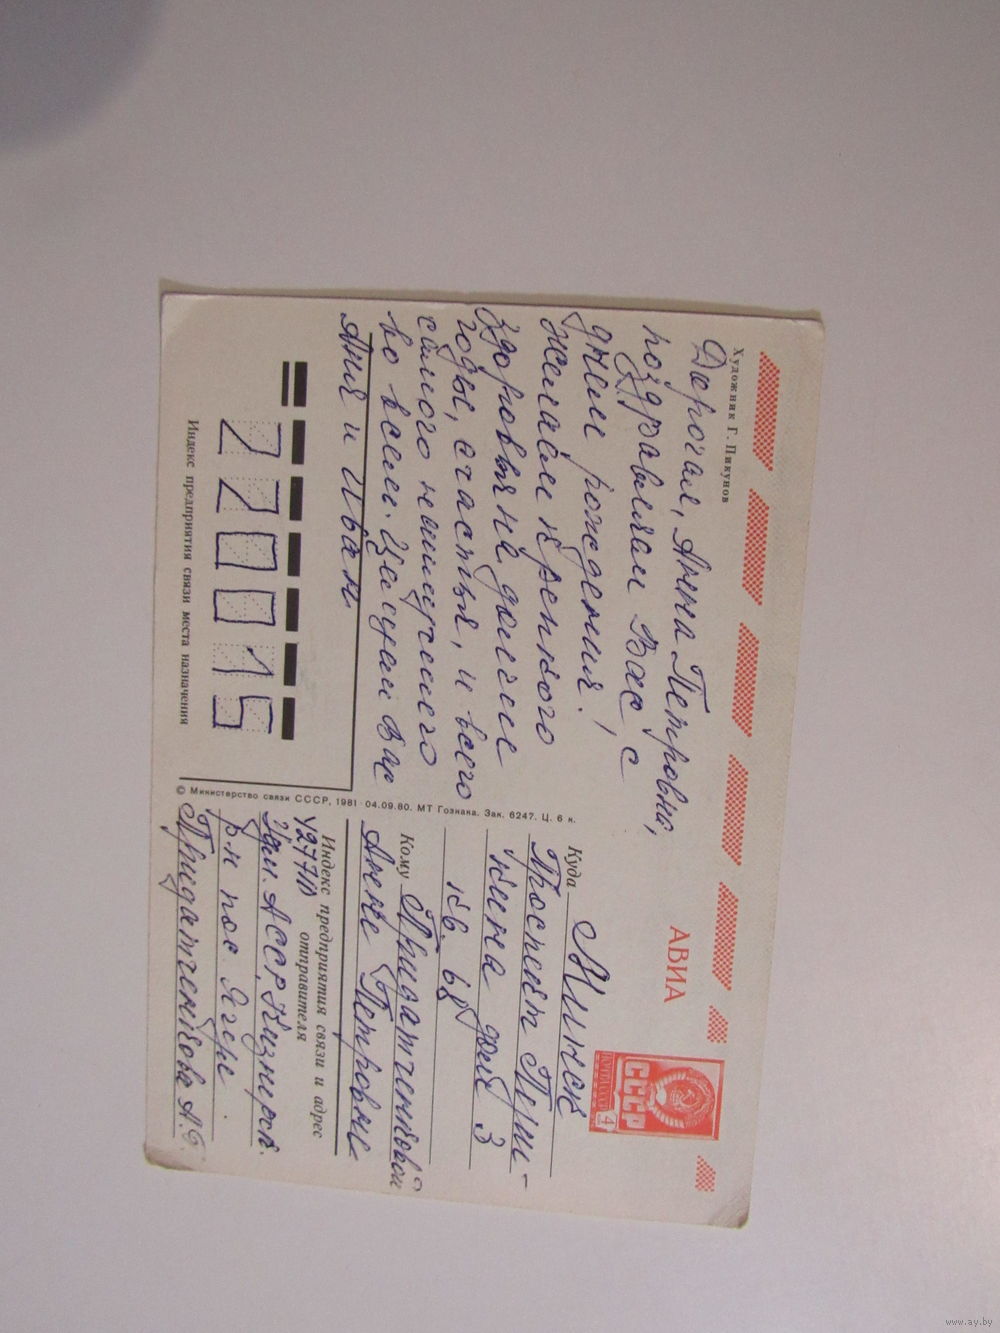 Художник Г. Пикунов
Дорогая, Анна Петровна,
поздравляем Вас с
днем рождения!
Желаем крепкого
здоровья на долгие
годы, счастья, и всего
самого наилучшего
во всем. Целуем Вас
Аня и Иван
220015
Индекс предприятия связи места назначения
© Министерство связи СССР, 1981 04.09.80. МТ Гознака. Зак. 6247. Ц. 6 к.
АВИА
ПОЧТА СССР 4
СССР
Куда Минск
Проспект Пуш-
кина дом 3
кв. 68
Кому Придатченковой
Анне Петровне
Индекс предприятия связи и адрес
отправителя
427710
Удм. АССР, Кизнерск.
р-н пос. Ягул.
Придатченкова А.
www.ay.by